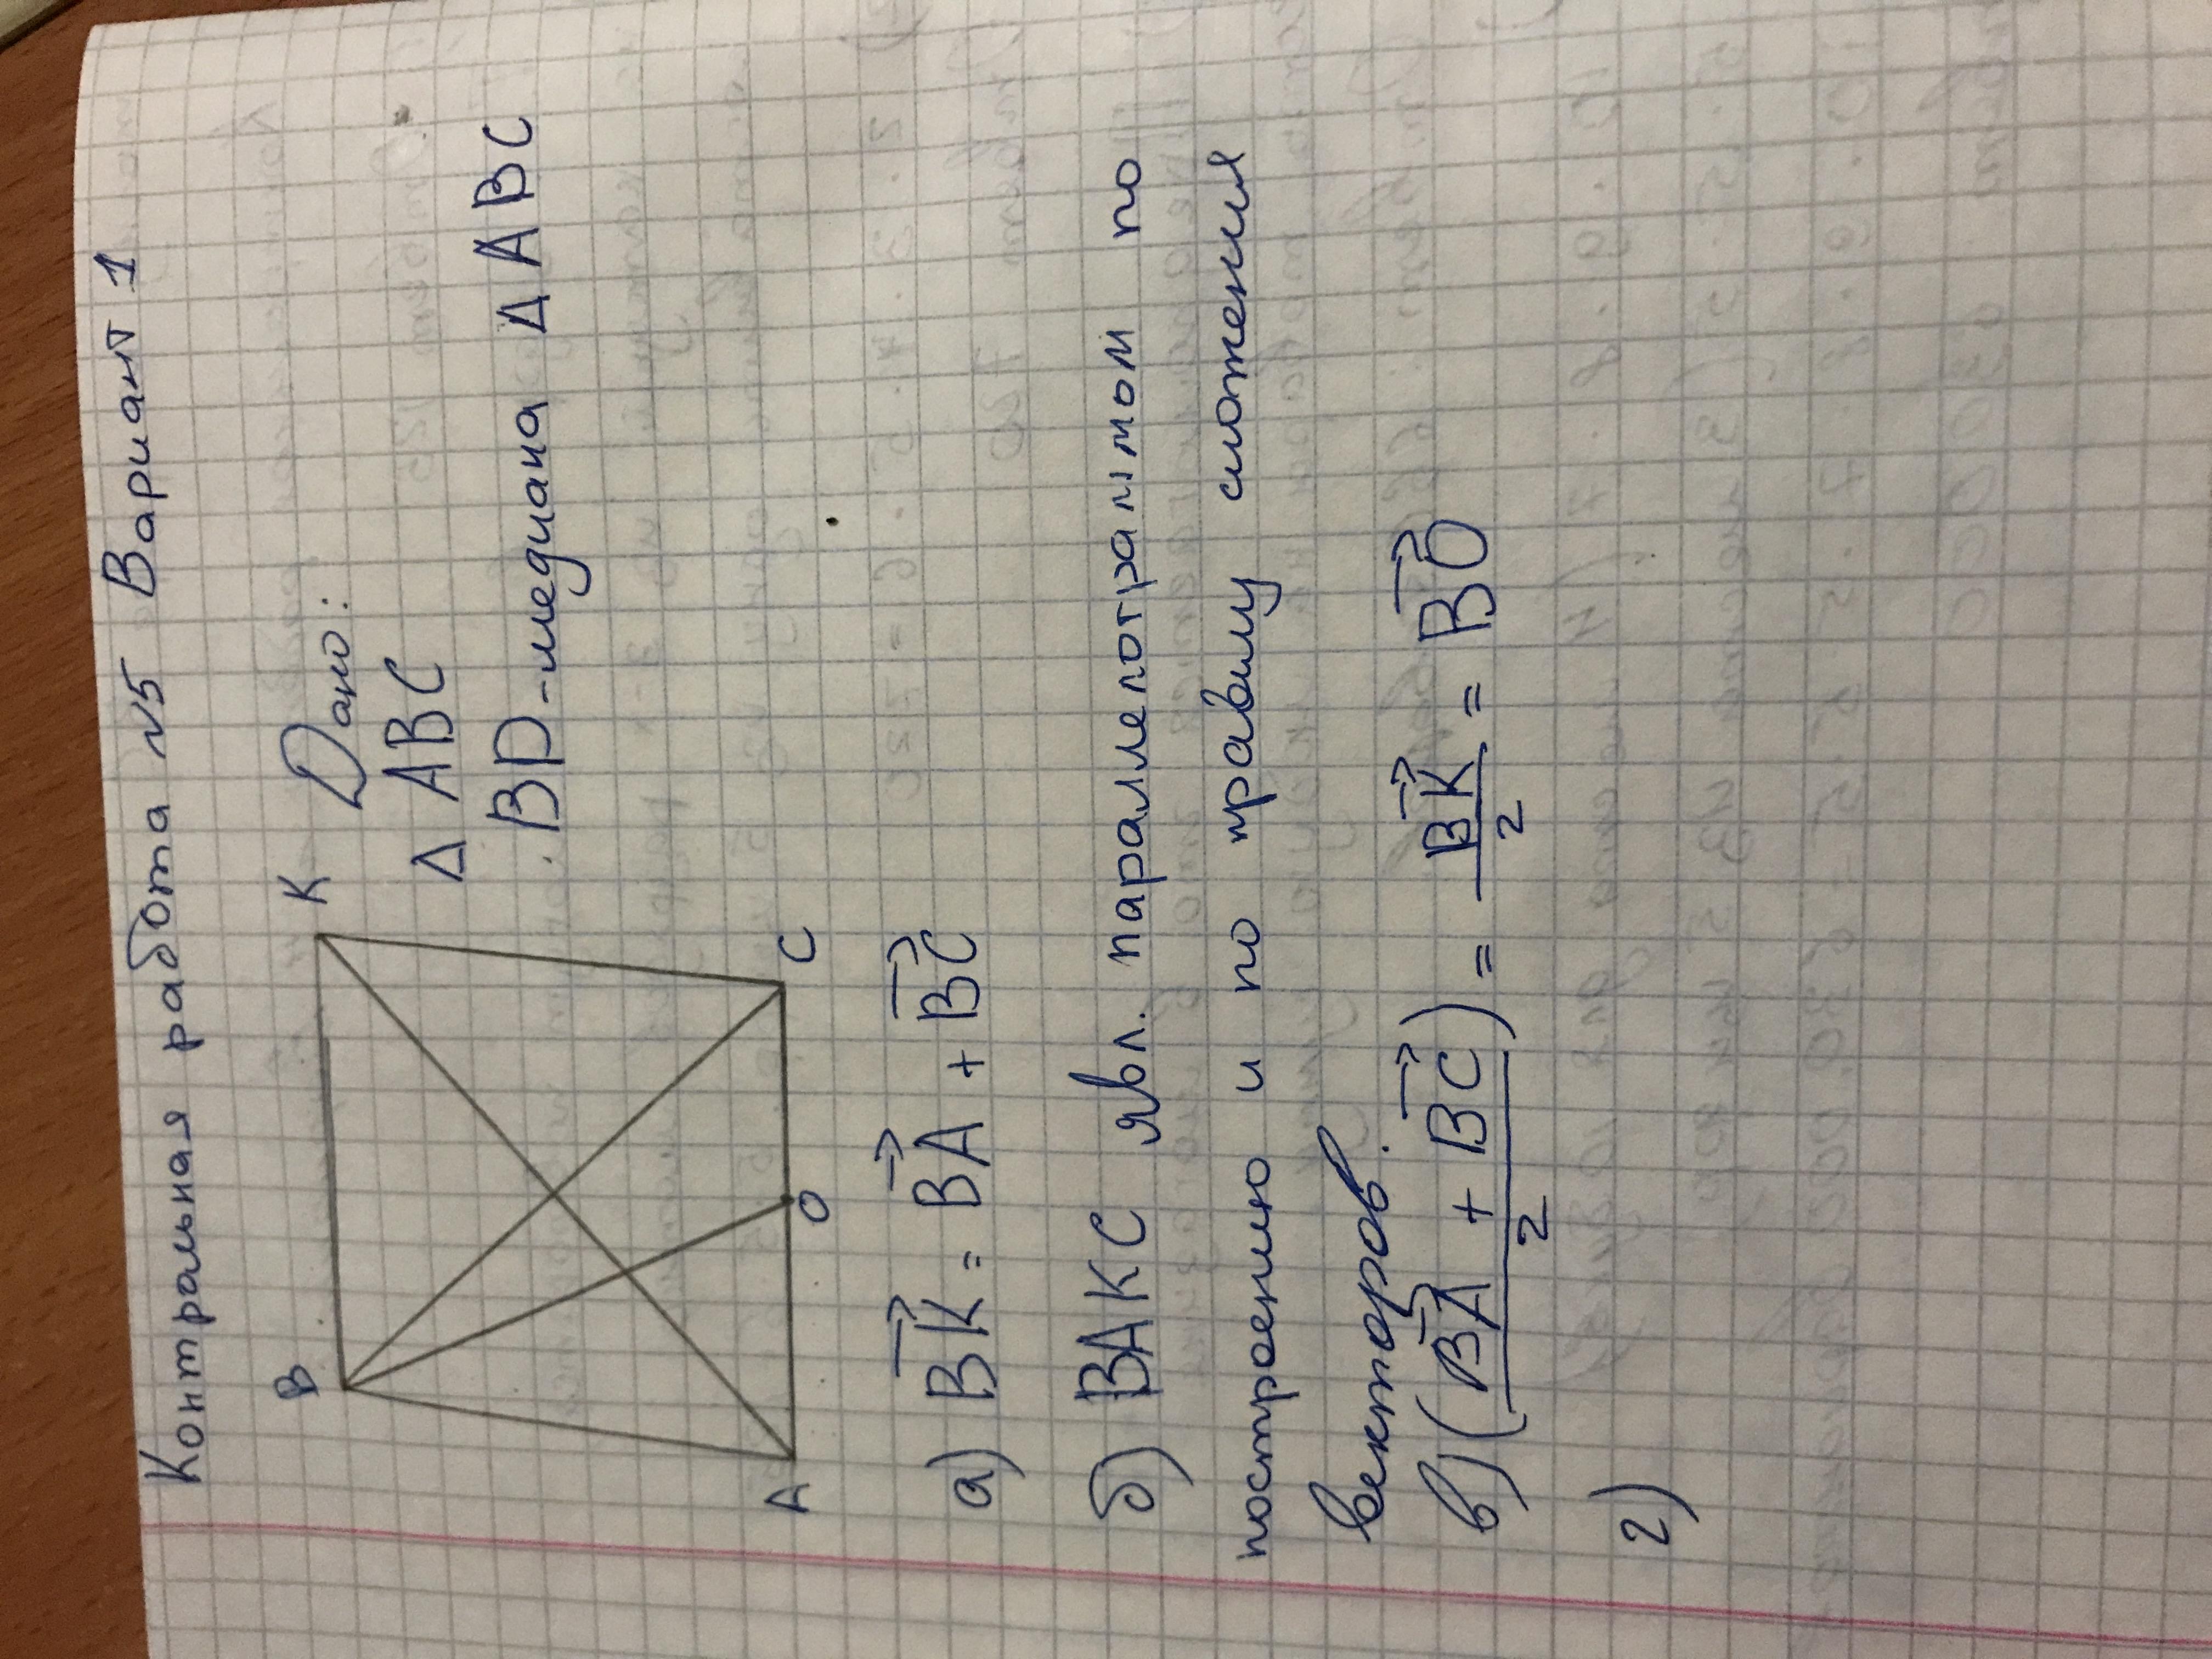 Контрольная работа №5 Вариант 1
B
K
A
O
C
Дано:
Δ ABC
BD-медиана Δ ABC
а) BK⃗ = BA⃗ + BC⃗
б) BAKC явл. параллелограммом по
построению и по правилу сложения
векторов.
в) (BA⃗ + BC⃗)/2 = BK⃗/2 = BO⃗
2)